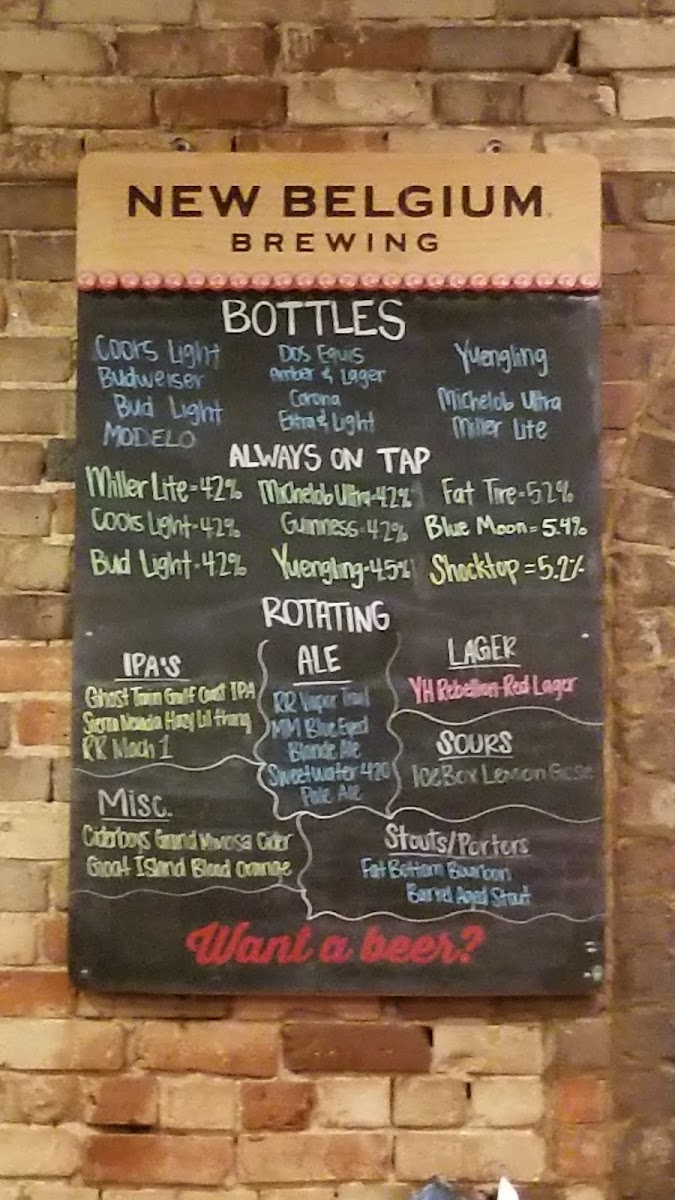 NEW BELGIUM
BREWING
BOTTLES
Coors Light
Budweiser
Bud Light
MODELO
Dos Equis
Amber & Lager
Corona
Extra & Light
Yuengling
Michelob Ultra
Miller Lite
ALWAYS ON TAP
Miller Lite-4.2%
Coors Light-4.2%
Bud Light-4.2%
Michelob Ultra-4.2%
Guinness-4.2%
Yuengling-4.5%
Fat Tire-5.2%
Blue Moon=5.4%
Shocktop=5.2%
ROTATING
IPA'S
Ghost Town Gulf Coast IPA
Sierra Nevada Hazy Lil thing
RR Mach 1
ALE
RR Vapor Trail
MM Blue Eyed
Blonde Ale
Sweetwater 420
Pale Ale
LAGER
YH Rebellion Red Lager
SOURS
Ice Box Lemon Gose
Misc.
Ciderboys Grand Mimosa Cider
Goat Island Blood Orange
Stouts/Porters
Fat Bottom Bourbon
Barrel Aged Stout
Want a beer?